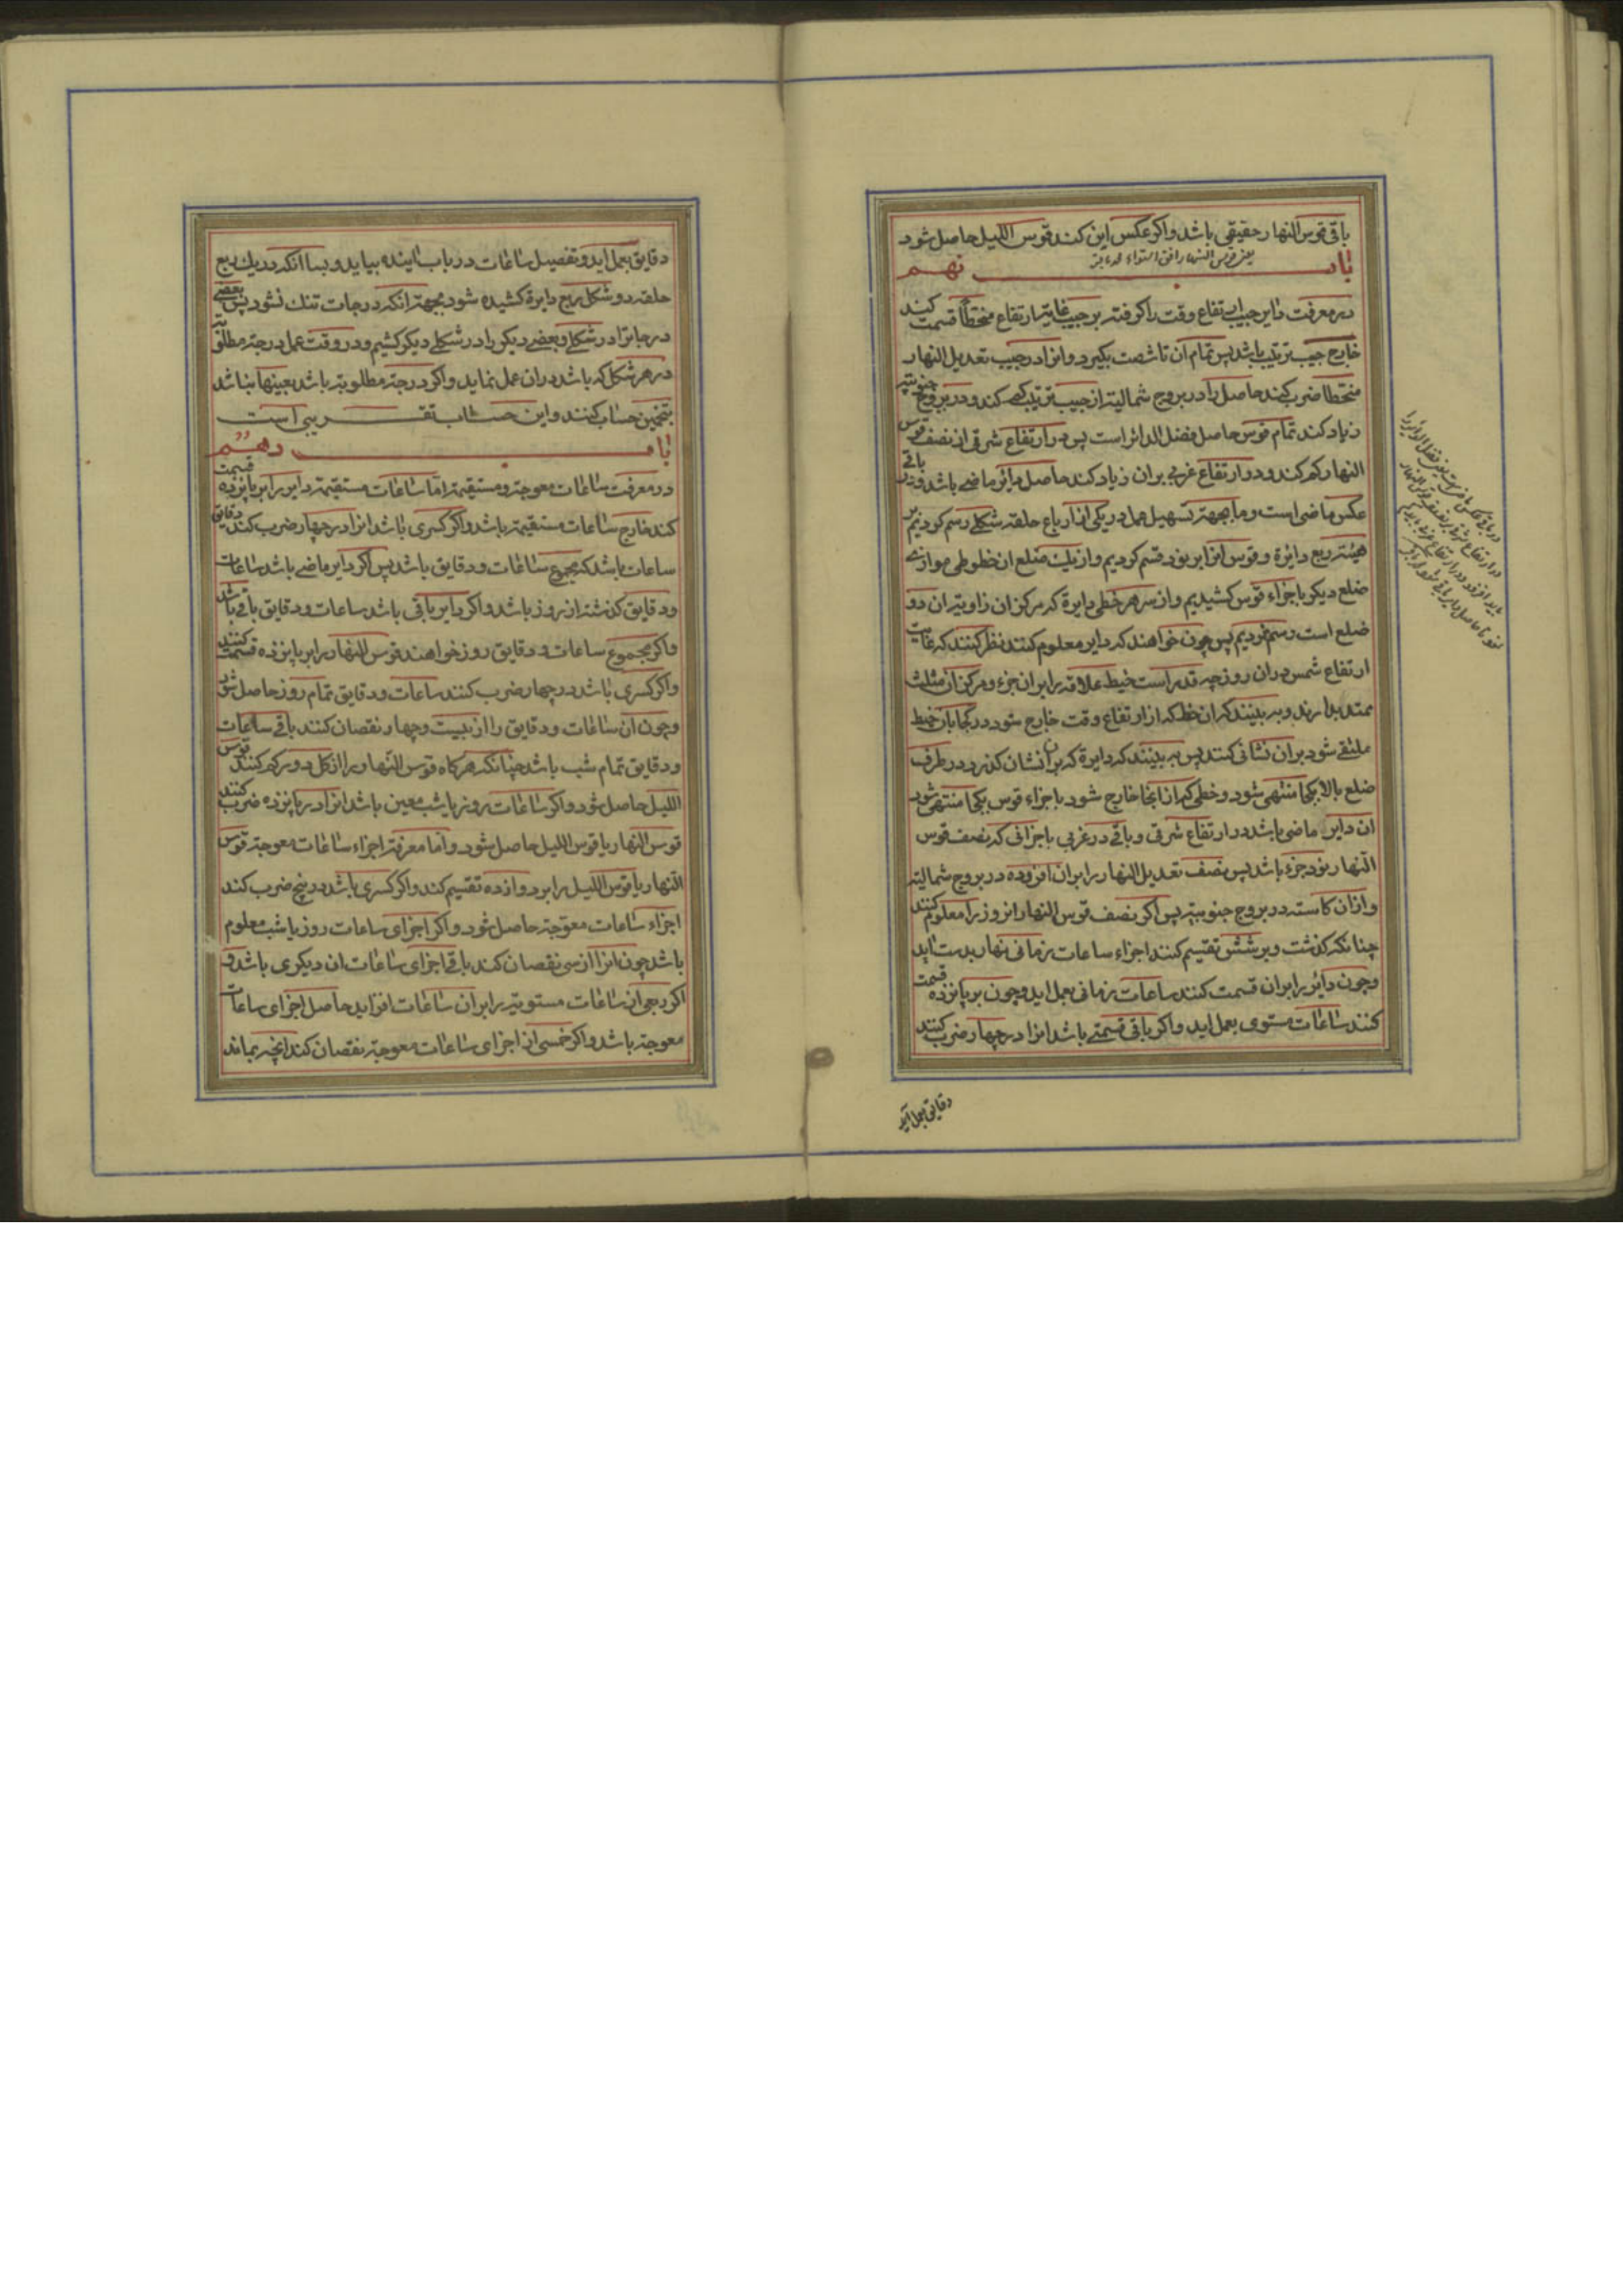 باقی قوس النهار حقیقی باشد و اکر عکس این کنند قوس اللیل حاصل شود
باب نهم
در معرفت دایر جیب ارتفاع وقت را کرفته بر جیب غایة ارتفاع منحطا قسمت کنند
خارج جیب ترتیب باشد پس تمام آن تا شصت بکیرد و انرا در جیب تعدیل النهار
منحطا ضرب کنند حاصل را در بروج شمالیه از جیب ترتیب کم کند و در بروج جنوبیه
زیاد کند تمام قوس حاصل فضل الدائر است پس در ارتفاع شرقی از نصف قوس
النهار کم کند و در ارتفاع غربی بران زیاد کند حاصل دائر ماضی باشد و دایر باقی
عکس ماضی است و ما بجهة تسهیل عمل در یکی از ارباع حلقه شکلی رسم کردیم بر
هیئة ربع دائرة و قوس انرا بر نود قسم کردیم و از یک ضلع ان خطوطی موازی
ضلع دیکر با جزاء قوس کشیدیم و از سر هر خطی دایرة که مرکز ان زاویة ان دو
ضلع است رسم نمودیم پس چون خواهند که دایر معلوم کنند نظر کنند که غایت
ارتفاع شمس دران روز چه قدر است خیط علاقه را بران جزء و مرکز ان مثلث
ممتد بدارند و به بینند که ان خط که از ارتفاع وقت خارج شود در کجا بان خیط
ملتقی شود بران نشانی کنند پس به بینند که دایرة که بران نشان کذرد در طرف
ضلع بالا بکجا منتهی شود و خطی که از انجا خارج شود با جزاء قوس بکجا منتهی شود
ان دایر ماضی باشد در ارتفاع شرقی و باقی در غربی با جزائی که نصف قوس
النهار نود جزء باشد پس نصف تعدیل النهار را بران افزوده در بروج شمالیه
و ازان کاسته در بروج جنوبیه پس اکر نصف قوس النهار انروز را معلوم کنند
چنانکه کذشت و بر شش تقسیم کنند اجزاء ساعات زمانی نهار بدست اید
و چون دائر را بران قسمت کنند ساعات زمانی بعمل اید و چون بر پانزده قسمت
کنند ساعات مستوی بعمل اید و اکر باقی قسمتی باشد انرا در چهار ضرب کنند
دقایق بعمل آید
دقایق بعمل اید و تفصیل ساعات در باب اینده بیاید و بسا انکه در یک ربع
حلقه دو شکل ربع دایرة کشیده شود بجهة انکه درجات تنک نشود پس بعضی
درجات را در شکلی و بعضی دیکر را در شکلی دیکر کشیم و در وقت عمل درجه مطلوبه
در هر شکل که باشد دران عمل نماید و اکر درجه مطلوبه باشد بعینها نباشد
بتخمین حساب کنند و این حساب تقریبی است
باب دهم
در معرفت ساعات معوجة و مستقیمه اما ساعات مستقیمه دایر را بر پانزده قسمت
کنند خارج ساعات مستقیمه باشد و اکر کسری باشد انرا در چهار ضرب کنند دقایق
ساعات باشد که مجموع ساعات و دقایق باشد پس اکر دایر ماضی باشد ساعات
و دقایق کذشته از روز باشد و اکر دایر باقی باشد ساعات و دقایق باقی باشد
و اکر مجموع ساعات و دقایق روز خواهند قوس النهار را بر پانزده قسمت کنند
و اکر کسری باشد در چهار ضرب کنند ساعات و دقایق تمام روز حاصل شود
و چون ان ساعات و دقایق را از بیست و چهار نقصان کنند باقی ساعات
و دقایق تمام شب باشد چنانکه هرکاه قوس النهار را از کل دور کم کنند قوس
اللیل حاصل شود و اکر ساعات روز یا شب معین باشد انرا در پانزده ضرب کنند
قوس النهار یا قوس اللیل حاصل شود و اما معرفة اجزاء ساعات معوجة قوس
النهار یا قوس اللیل را بر دوازده تقسیم کند و اکر کسری باشد در پنج ضرب کند
اجزاء ساعات معوجة حاصل شود و اکر اجزای ساعات روز یا شب معلوم
باشد چون انرا از سی نقصان کند باقی اجزای ساعات ان دیکری باشد و
اکر ربعی از ساعات مستویه را بران ساعات افزاید حاصل اجزای ساعات
معوجة باشد و اکر خمسی از اجزای ساعات معوجة نقصان کند انچه بماند